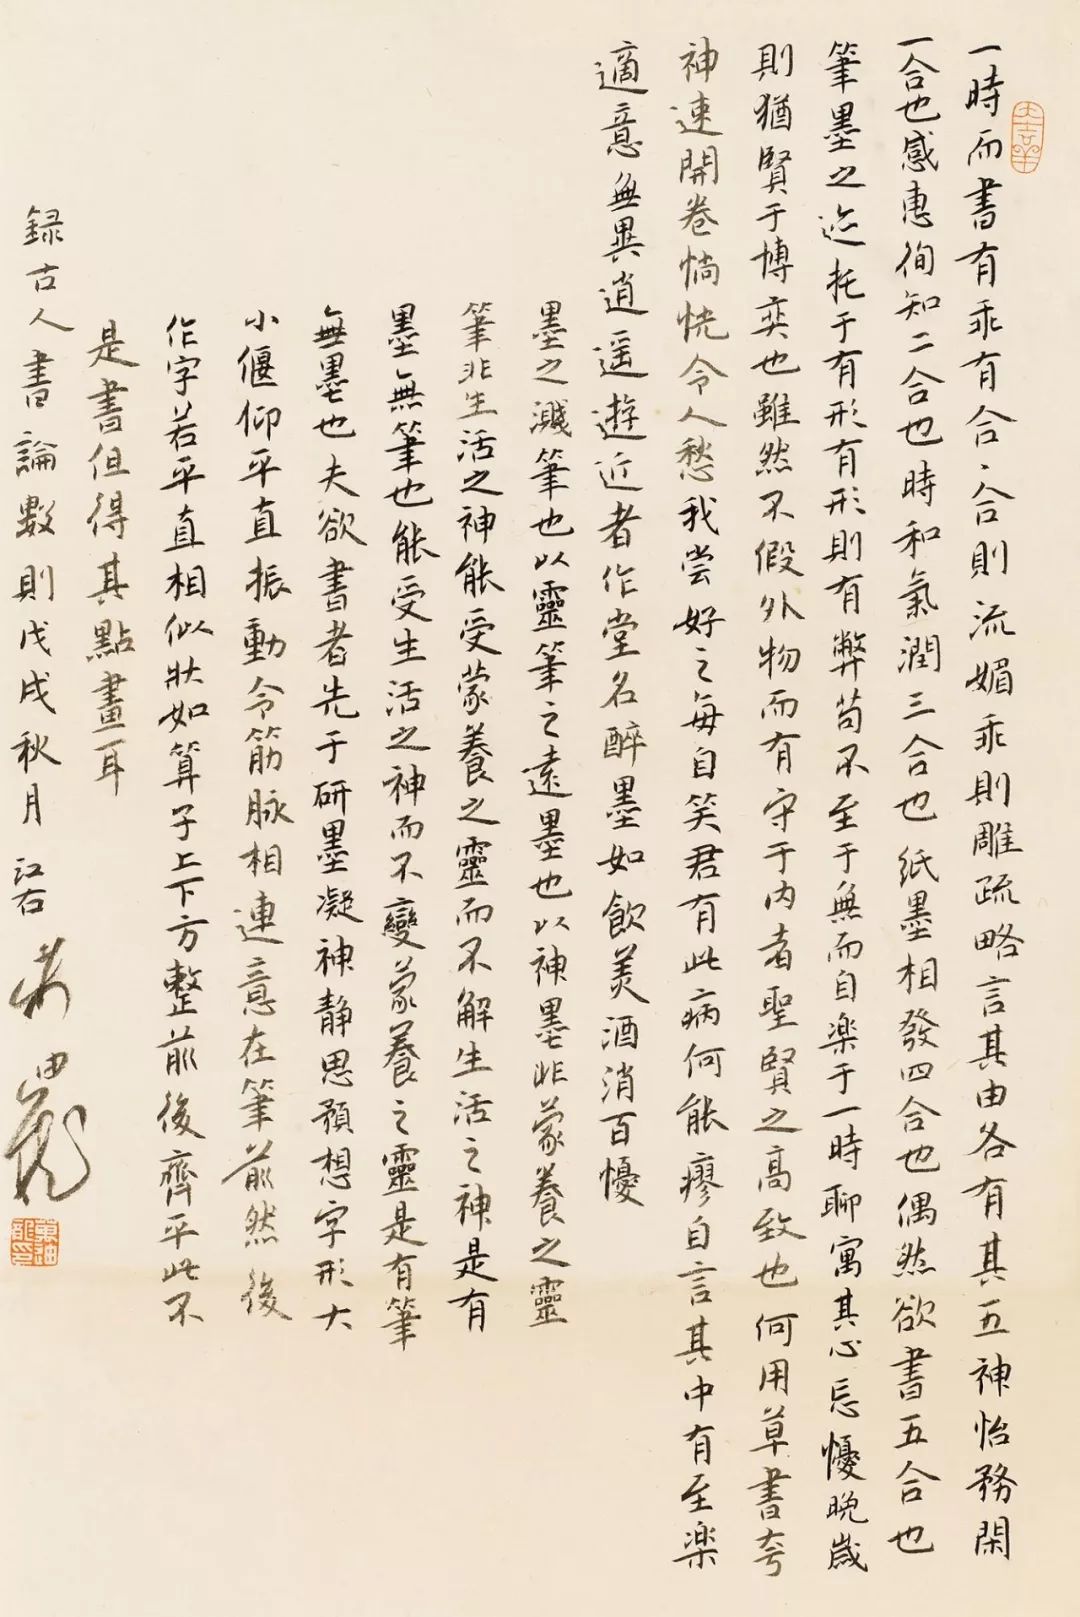 一時而書有乖有合、合則流媚乖則雕疏略言其由各有其五神怡務閑
一合也感惠徇知二合也時和氣潤三合也紙墨相發四合也偶然欲書五合也
筆墨之迹托于有形有形則有弊苟不至于無而自楽于一時聊寓其心忘懮晚歲
則猶賢于博奕也雖然不假外物而有守于内者聖賢之高致也何用草書夸
神速開卷惝恍令人愁我尝好之每自笑君有此病何能瘳自言其中有至楽
適意無異逍遥遊近者作堂名醉墨如飲美酒消百懮
墨之濺筆也以靈筆之遠墨也以神墨非蒙養之靈
筆非生活之神能受蒙養之靈而不解生活之神是有
墨無筆也能受生活之神而不變蒙養之靈是有筆
無墨也夫欲書者先于研墨凝神静思預想字形大
小偃仰平直振動令筋脉相連意在筆前然後
作字若平直相似狀如算子上下方整前後齊平此不
是書但得其點畫耳
録古人書論數則戊戌秋月江右